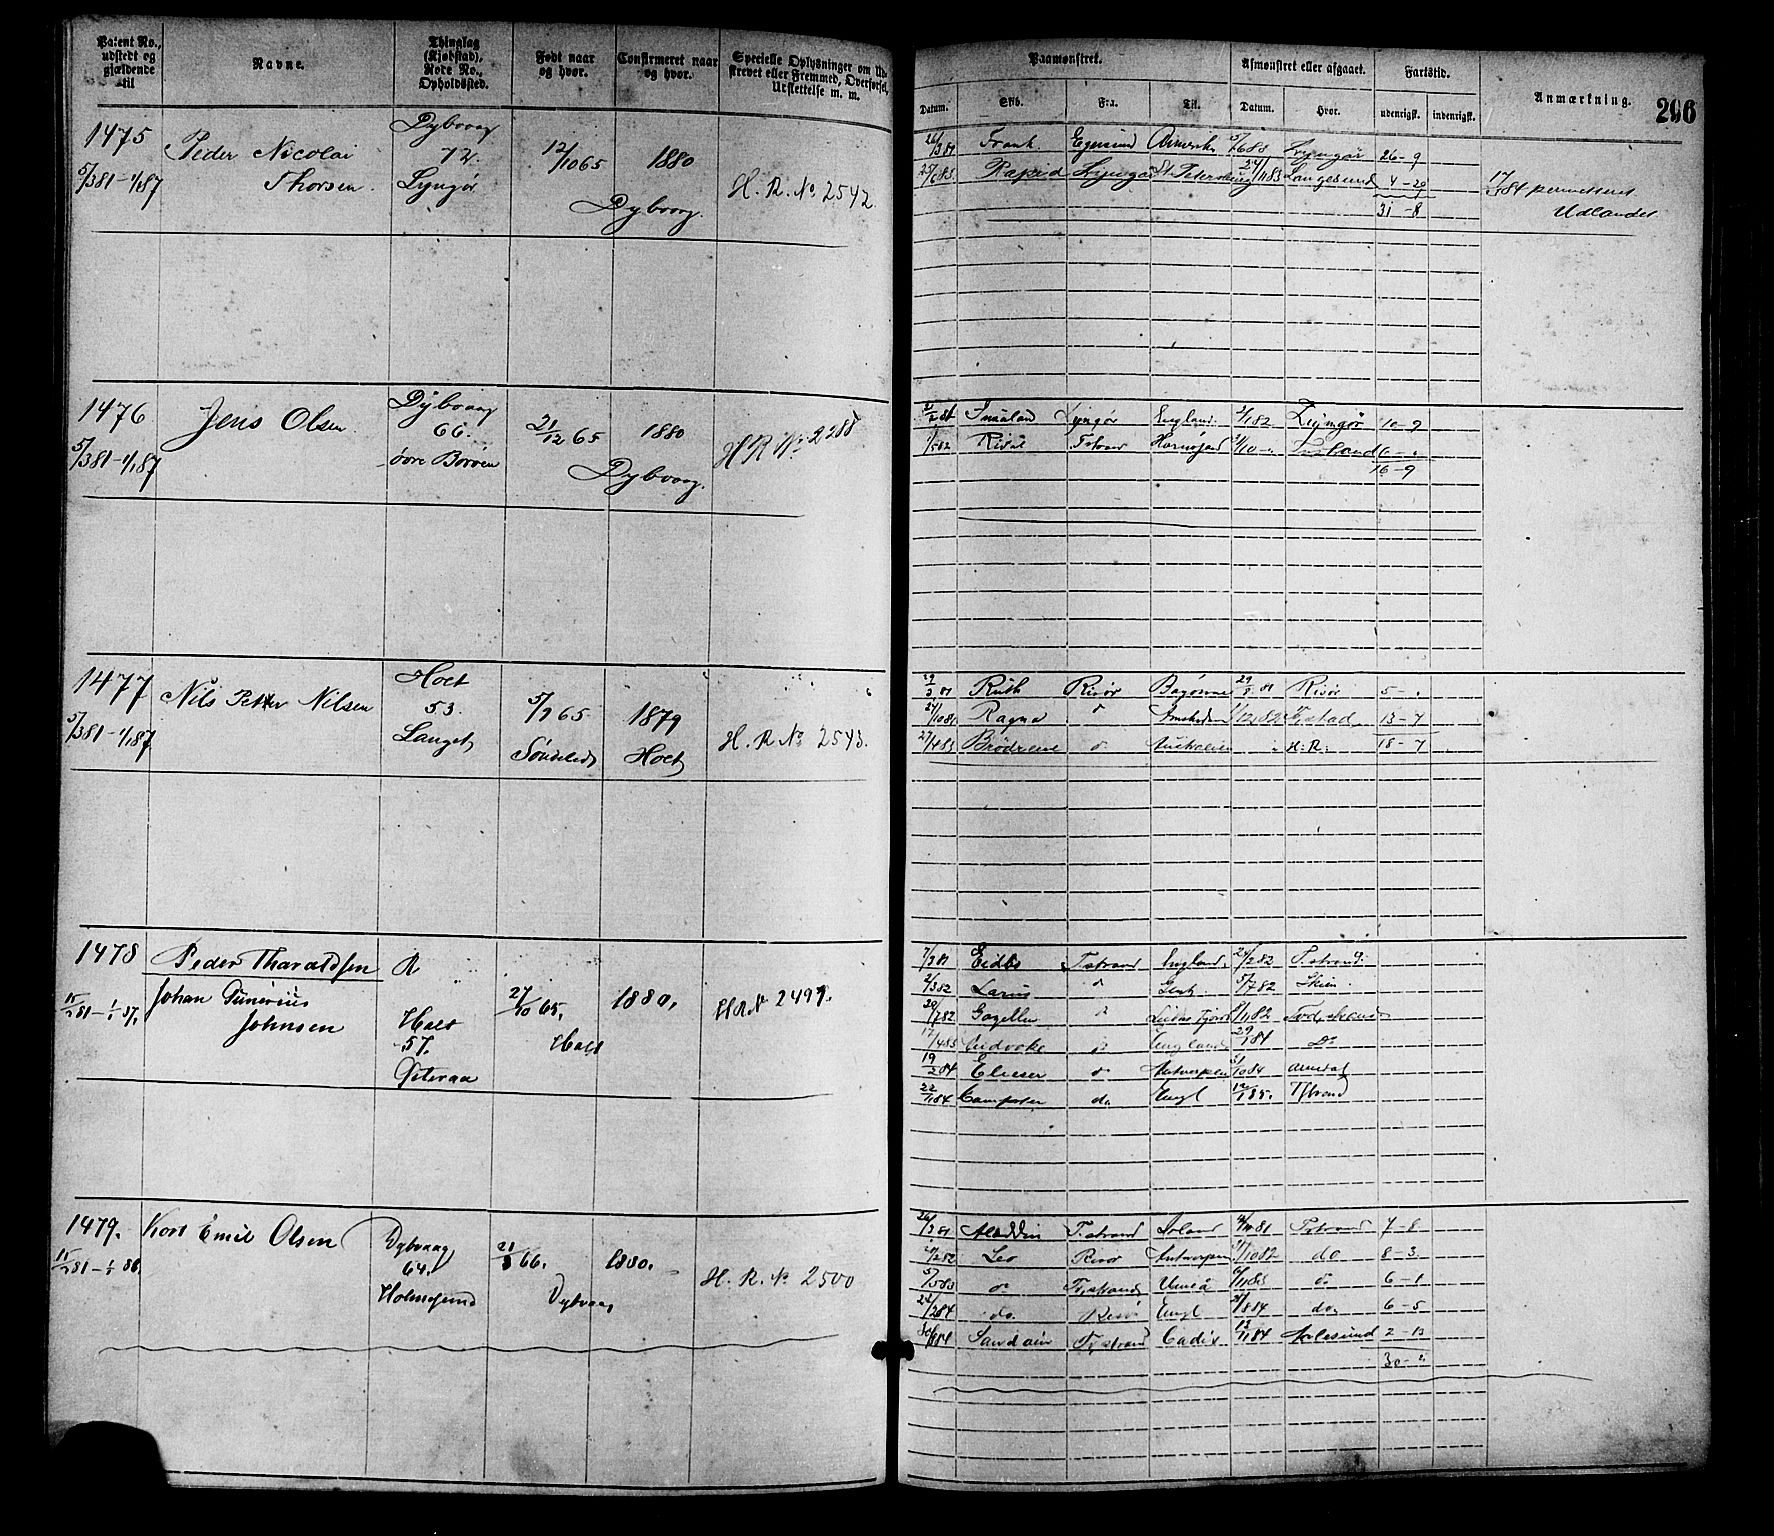 Patent No., udstedt og gjældende til
Navne.
Thinglag (Kjøbstad), Rode No., Opholdssted.
Født naar og hvor.
Confirmeret naar og hvor.
Specielle Oplysninger om Ud-
skrevet eller Fremmed, Overførsel,
Udslettelse m. m.
Paamønstret.
Datum. Skib. Fra. Til.
Afmønstret eller afgaaet.
Datum. Hvor.
Fartstid.
udenrigsk. indenrigsk.
Anmærkning.
296
1475
5/3 81-1/1 87
Peder Nicolai
Thorsen.
Dybvaag
72.
Lyngør
12/10 65
1880
Dybvaag.
H. R. No 2542.
26/3 81 Frank Egersund 5/6 83 Lyngør 26-9
25/6 83 Rapid Lyngør St. Petersburg 24/11 83 Langesund 4-29
31-8
17/ 84 permitteret
Udlandet
1476
5/3 81-1/1 87
Jens Olsen
Dybvaag
66.
øvre Borøen
21/12 65
1880
Dybvaag.
H R No 2288
Lyngør England. 2/1 82 Lyngør 10-9
Tstrand Island 6-"
16-9
1477
5/3 81-1/1 87
Nils Petter Nilsen
Holt
53.
Langet
5/7 65
Søndeled
1879
Holt
H. R. No 2543.
Ruth Risør 29/8 81 Risør 5-"
27/10 81 Ragna do 13-7
27/4 83 Brødrene do Australien " H. R. 18-7
1478
15/3 81-1/1 87.
Peder Tharaldsen
Johan
Johnsen
R
Holt
57.
Østeraa
27/10 65,
Holt
1880,
H R No 2499.
7/3 81 Eidbo Tstrand England, 24/2 82 T.strand.
2/3 82 Larus do Gent 5/7 82 Skien.
20/7 82 Gazellen do 8/11 82 Tvedestrand
17/4 83 do England 29/1 84 Do
19/2 84 Elieser do Antwerpen 31/10 84 Arendal
22/11 84 do. Engl 12/1 85. Tstrand
1479.
15/3 81-1/1 86
Kort Emil Olsen
Dybvaag
64.
Holmesund
21/3 66.
Dybvaag
1880.
H. R. No 2500
26/3 81 Aladdin T.strand 4/11 81 Tvstrand 7-8
Leo Risør Antwerpen 31/10 82 do 8-3
5/5 83 do Tvstrand Umeå 6/11 83 do 6-1
24/2 84 do. Risør Engl 4/8 84 do, 6-5
30/ 84 Tvstrand Cadix 13/11 84 Aalesund 2-13
30-"